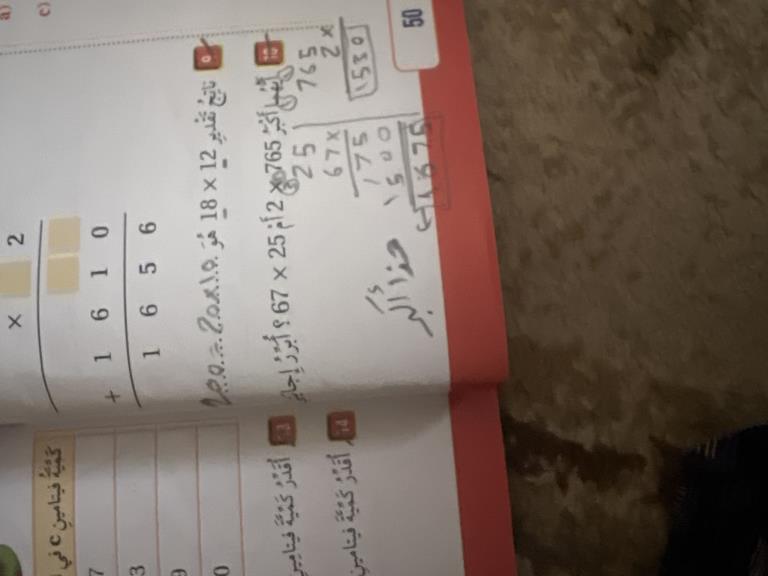 a)
c)
× 2
+ 1 6 1 0
1 6 5 6
ناتج تقدير 12 × 18 هو 200 = 20×10
أيهما أكبر 765 × 2 أم 25 × 67 ؟ أبرر إجابتي
765
2 ×
1530
25
67 ×
175
1500
1675
هذا أكبر
50
كمية فيتامين C في
7
3
9
0
13 أقدر كمية فيتامين
14 أقدر كمية فيتامين